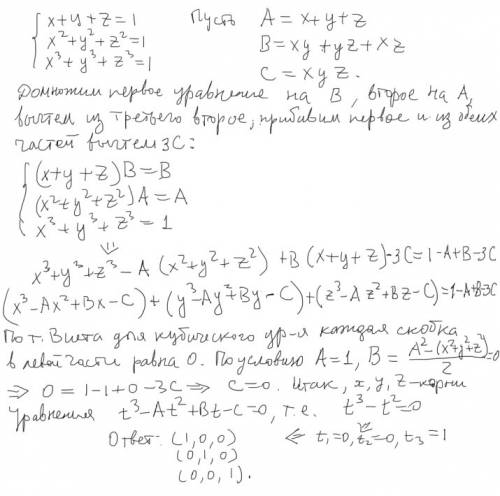 { x+y+z=1
x²+y²+z²=1
x³+y³+z³=1
Пусть A = x+y+z
B = xy+yz+xz
C = xyz.
Домножим первое уравнение на B, второе на A,
вычтем из третьего второе, прибавим первое и из обеих
частей вычтем 3C:
{ (x+y+z)B=B
(x²+y²+z²)A=A
x³+y³+z³=1
⇓
x³+y³+z³-A(x²+y²+z²)+B(x+y+z)-3C=1-A+B-3C
(x³-Ax²+Bx-C)+(y³-Ay²+By-C)+(z³-Az²+Bz-C)=1-A+B-3C
По т. Виета для кубического ур-я каждая скобка
в левой части равна 0. По условию A=1, B=(A²-(x²+y²+z²))/2=0
⇒ 0=1-1+0-3C ⇒ C=0. Итак, x, y, z-корни
уравнения t³-At²+Bt-C=0, т.е. t³-t²=0
⇓
Ответ: (1,0,0) ⇐ t₁=0, t₂=0, t₃=1
(0,1,0)
(0,0,1).